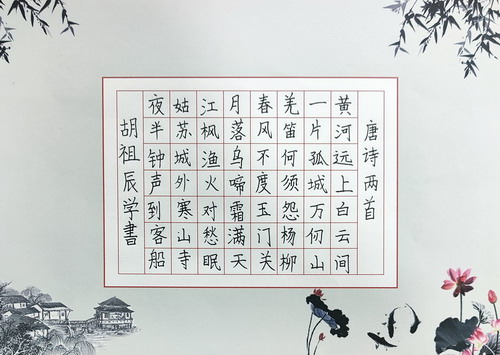 唐诗两首
黄河远上白云间
一片孤城万仞山
羌笛何须怨杨柳
春风不度玉门关
月落乌啼霜满天
江枫渔火对愁眠
姑苏城外寒山寺
夜半钟声到客船
胡祖辰学書